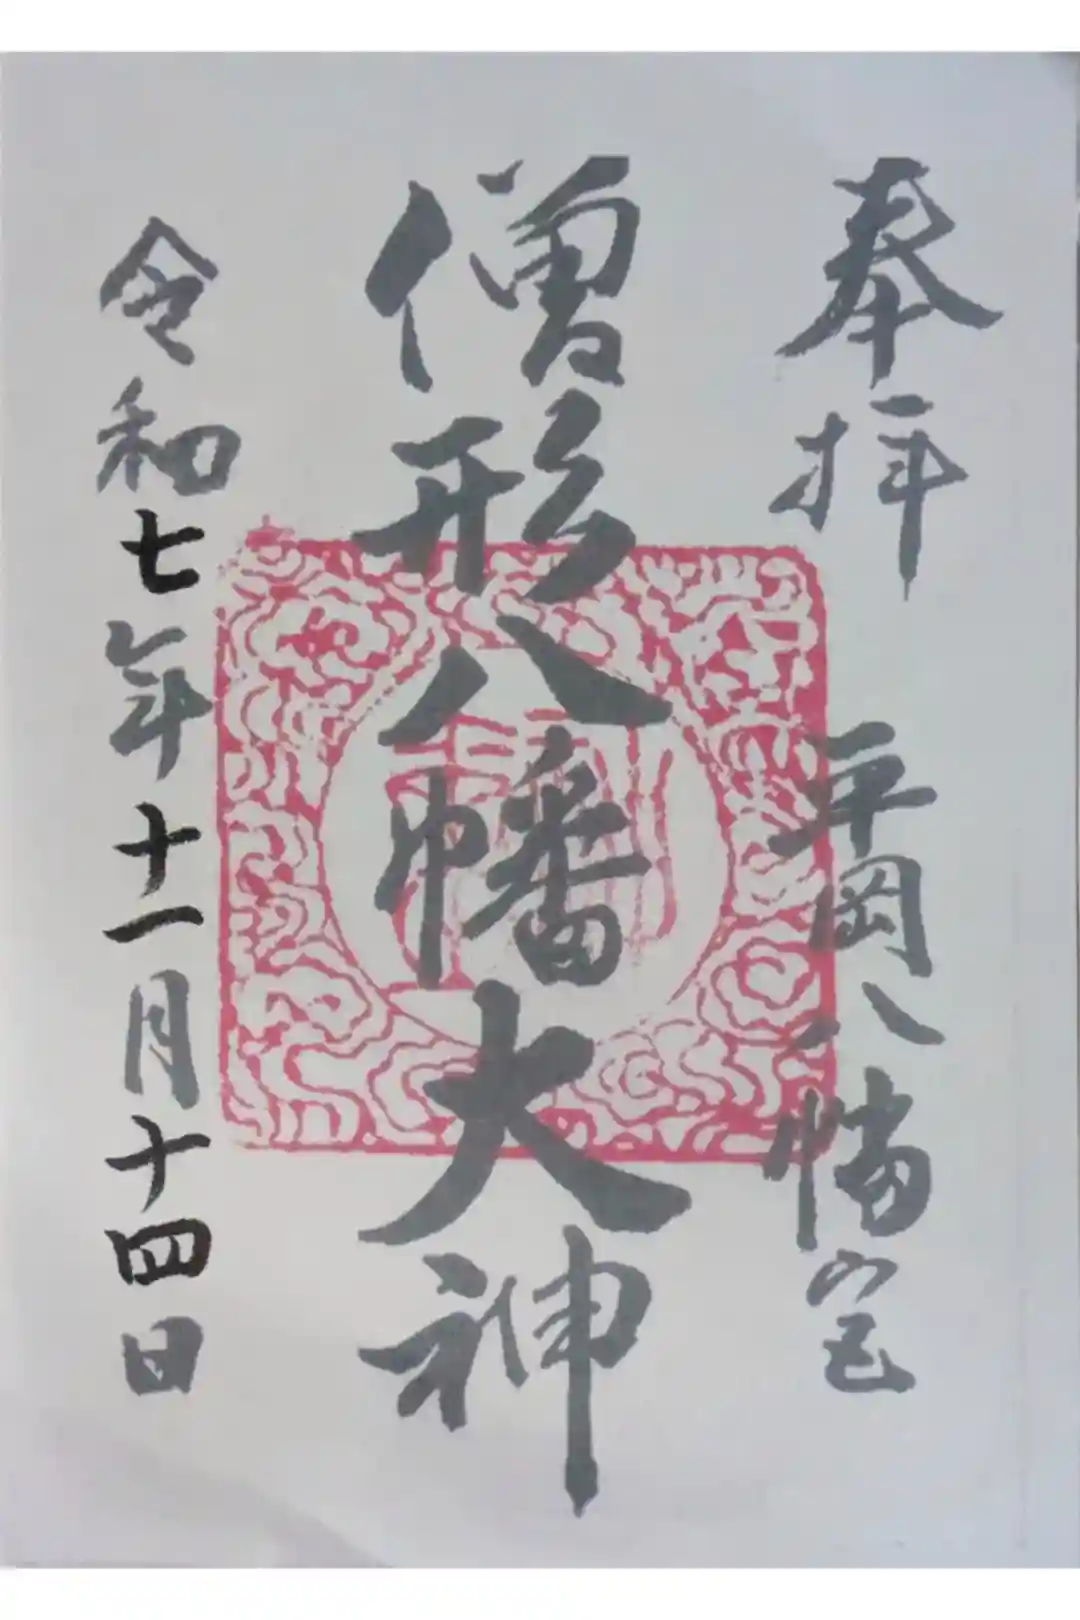 奉拝 平岡八幡宮
僧形八幡大神
令和七年十一月十四日